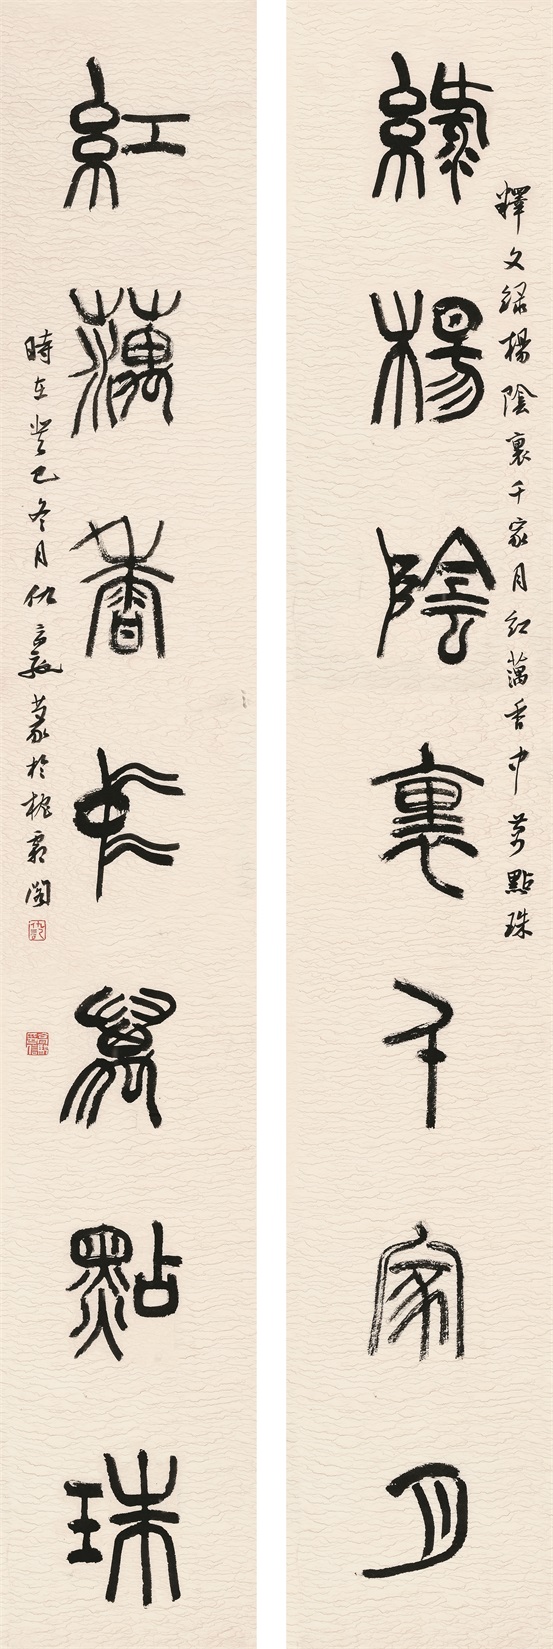 釋文綠楊陰裏千家月紅藕香中萬點珠
綠楊陰裏千家月
紅藕香中萬點珠
時在癸巳冬月仇篆於閣